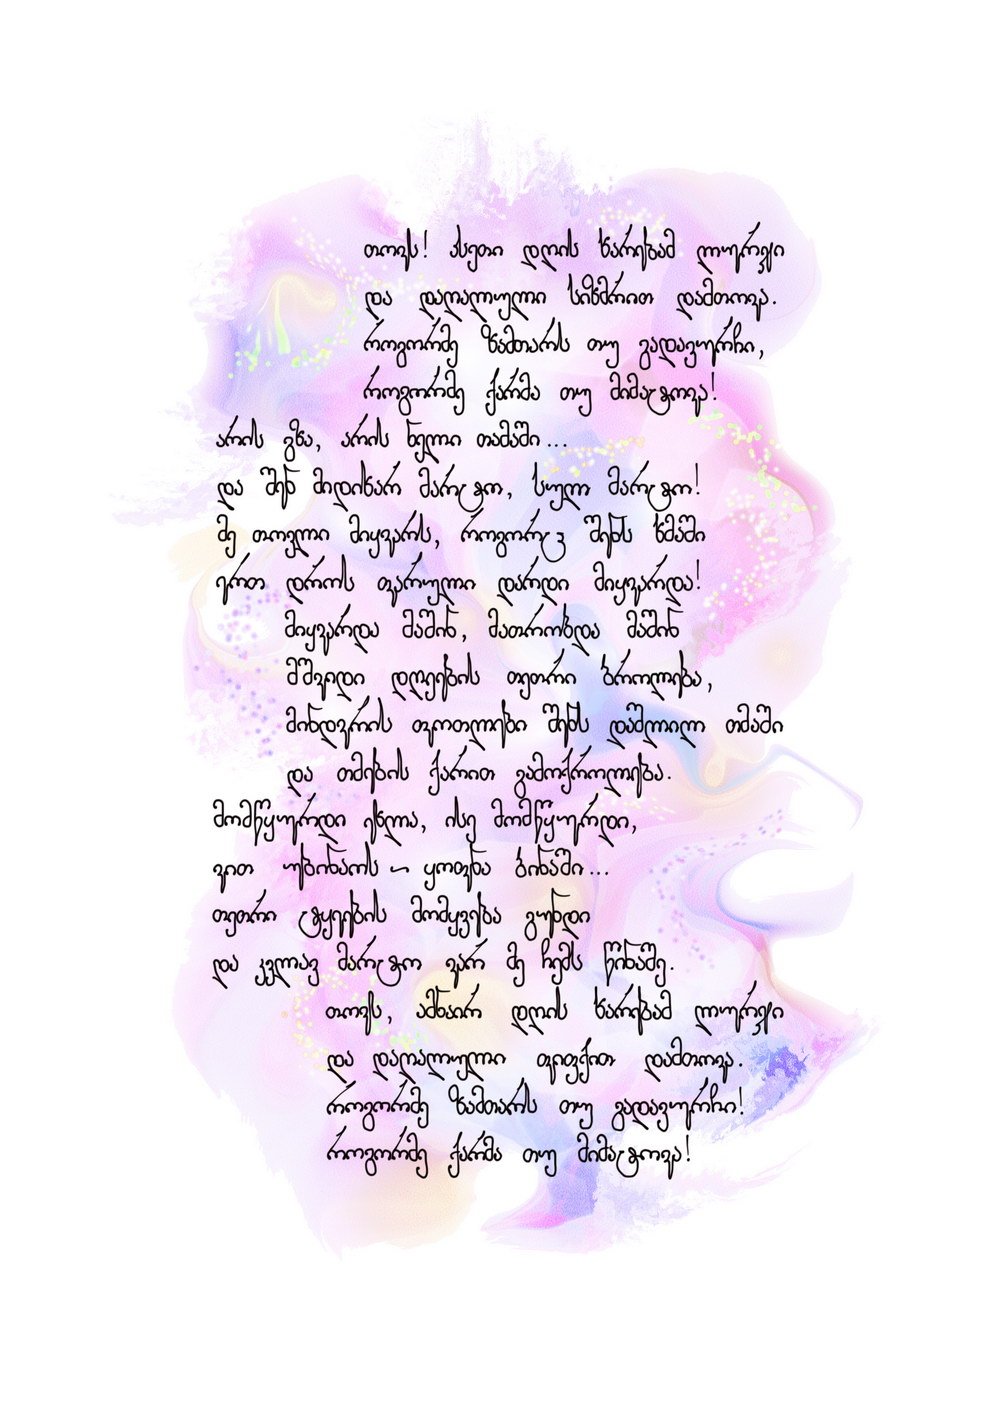 თოვს! ასეთი დღის ხარებამ ლურჯი
და დაღალული სიზმრით დამთოვა.
როგორმე ზამთარს თუ გადავურჩი,
როგორმე ქარმა თუ მიმატოვა!
არის გზა, არის ნელი თამაში...
და შენ მიდიხარ მარტო, სულ მარტო!
მე თოვლი მიყვარს, როგორც შენს ხმაში
ერთ დროს ფარული დარდი მიყვარდა!
მიყვარდა მაშინ, მათრობდა მაშინ
მშვიდი დღეების თეთრი ბროლება,
მინდვრის ფოთლები შენს დაშლილ თმაში
და თმების ქარით გამოქროლება.
მომწყურდი ეხლა, ისე მომწყურდი,
ვით უბინაოს – ყოფნა ბინაში...
თეთრი ტყეების მომყვება გუნდი
და კვლავ მარტო ვარ მე ჩემს წინაშე.
თოვს, ამნაირ დღის ხარებამ ლურჯი
და დაღალული ფიფქით დამთოვა.
როგორმე ზამთარს თუ გადავურჩი!
როგორმე ქარმა თუ მიმატოვა!